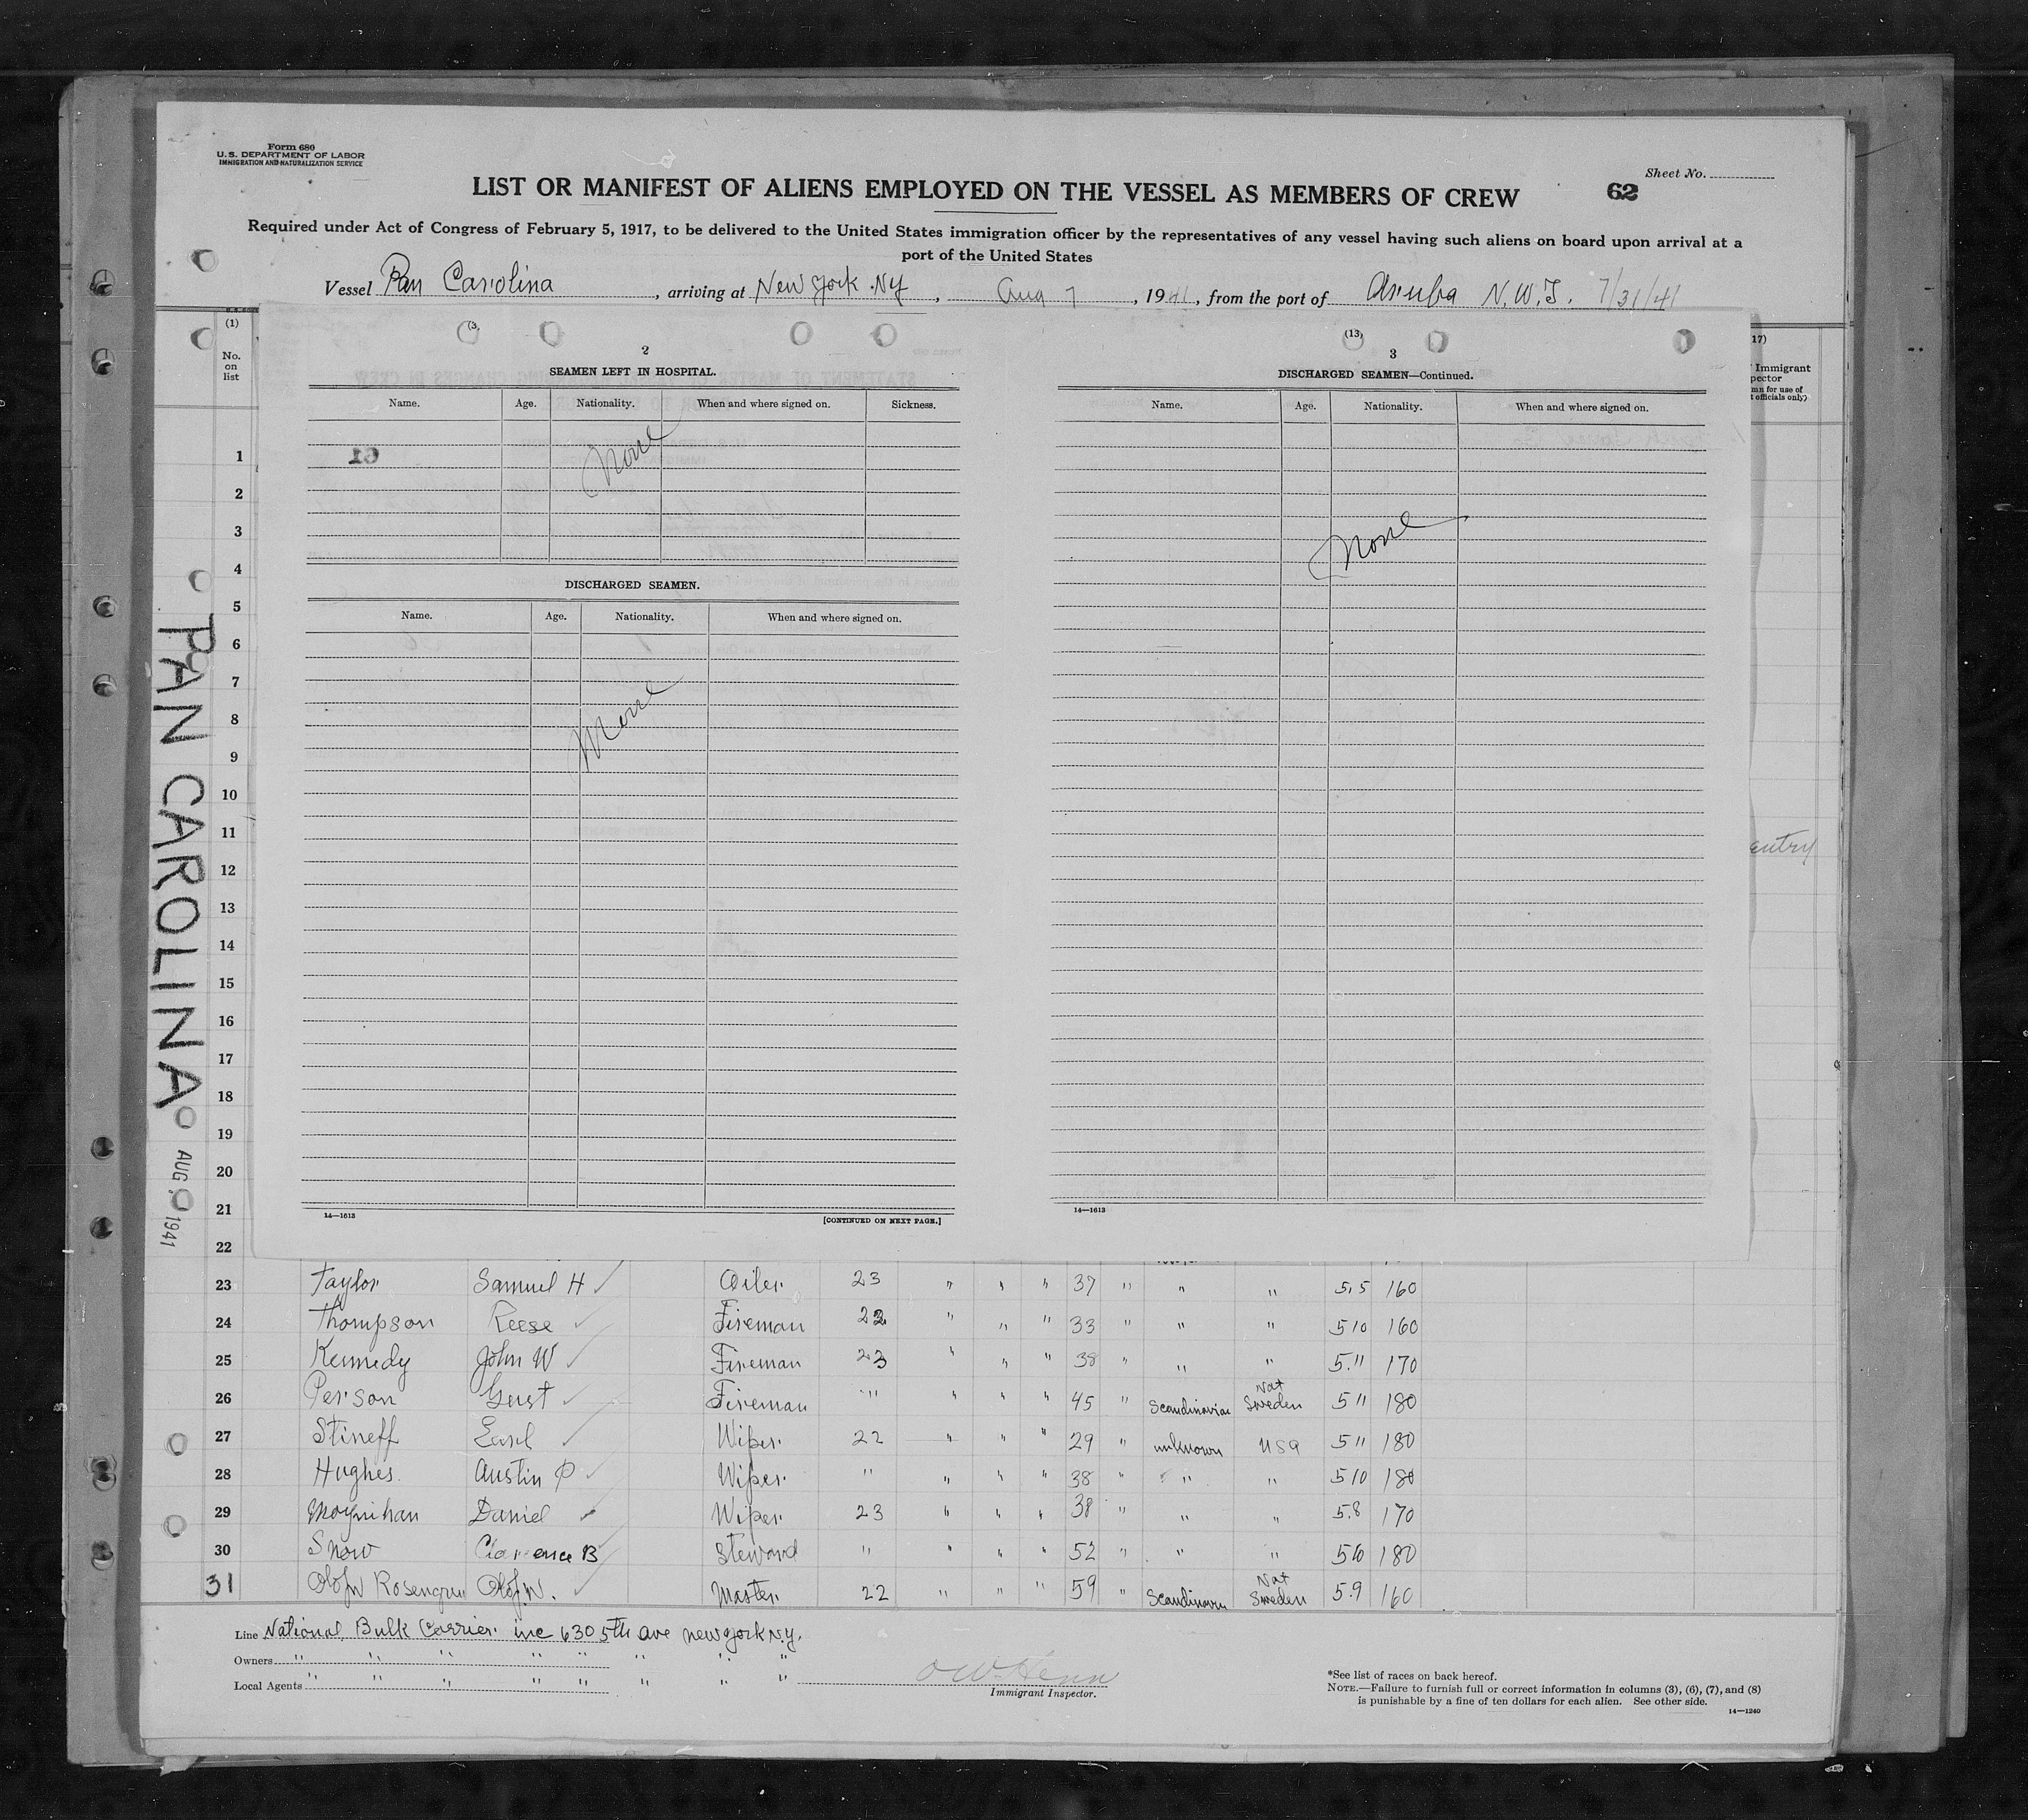 Form 680
U. S. DEPARTMENT OF LABOR
IMMIGRATION AND NATURALIZATION SERVICE
Sheet No.
62
LIST OR MANIFEST OF ALIENS EMPLOYED ON THE VESSEL AS MEMBERS OF CREW
Required under Act of Congress of February 5, 1917, to be delivered to the United States immigration officer by the representatives of any vessel having such aliens on board upon arrival at a
port of the United States
Vessel Pan Carolina, arriving at New York NY, Aug 7, 1941, from the port of Aruba N.W.I. 7/31/41
(1) (3 (13) 17)
No. on list
Immigrant
pector
mn for use of
t officials only)
2
SEAMEN LEFT IN HOSPITAL.
Name. Age. Nationality. When and where signed on. Sickness.
61
None
DISCHARGED SEAMEN.
Name. Age. Nationality. When and where signed on.
None
14—1613
[CONTINUED ON NEXT PAGE.]
3
DISCHARGED SEAMEN—Continued.
Name. Age. Nationality. When and where signed on.
None
14—1613
entry
PAN CAROLINA
AUG 1941
1
2
3
4
5
6
7
8
9
10
11
12
13
14
15
16
17
18
19
20
21
22
23 Taylor Samuel H Oiler 23 " " " 37 " " " 5.5 160
24 Thompson Reese Fireman 22 " " " 33 " " " 510 160
25 Kennedy John W Fireman 23 " " " 38 " " " 5.11 170
26 Person Gust Fireman " " " " 45 " Scandinavian Nat Sweden 511 180
27 Stineff Earl Wiper 22 " " " 29 " unknown USA 511 180
28 Hughes Austin P Wiper " " " " 38 " " " 510 180
29 Moynihan Daniel Wiper 23 " " " 38 " " " 5.8 170
30 Snow Clarence B Steward " " " " 52 " " " 180
31 Olof W. Master 22 " " " 59 " Nat Sweden 5.9 160
Line National Bulk Carrier inc 630 5th ave new york N.Y.
Owners " " " " " " " "
Local Agents " " " " " " " "
Immigrant Inspector.
*See list of races on back hereof.
NOTE.—Failure to furnish full or correct information in columns (3), (6), (7), and (8)
is punishable by a fine of ten dollars for each alien. See other side.
14—1240